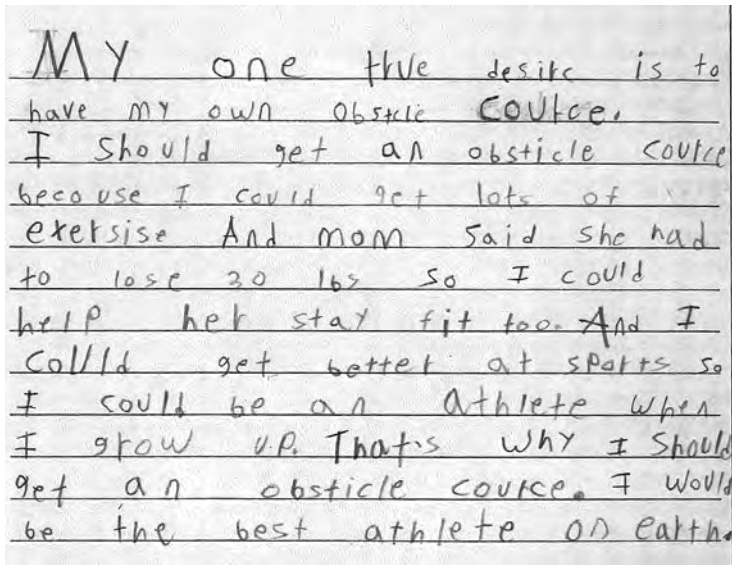 My one true desire is to
have my own obsticle cource.
I should get an obsticle cource
because I could get lots of
exersise And mom said she had
to lose 30 lbs so I could
help her stay fit too. And I
could get better at sports so
I could be an athlete when
I grow up. That's why I should
get an obsticle cource. I would
be the best athlete on earth.